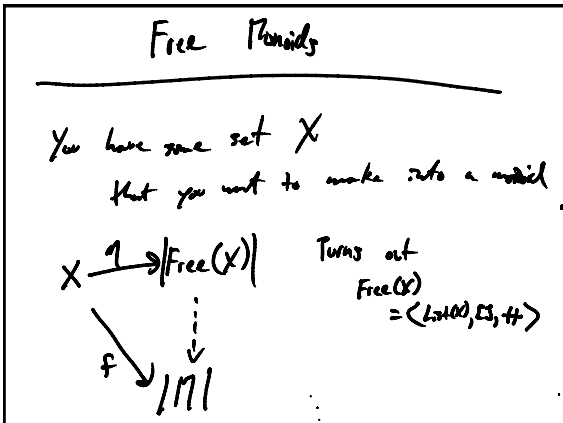 Free Monoids
You have some set X
that you want to make into a monoid
X η |Free(X)|
f
|M|
Turns out
Free(X)
= ⟨List(X), [], ++⟩